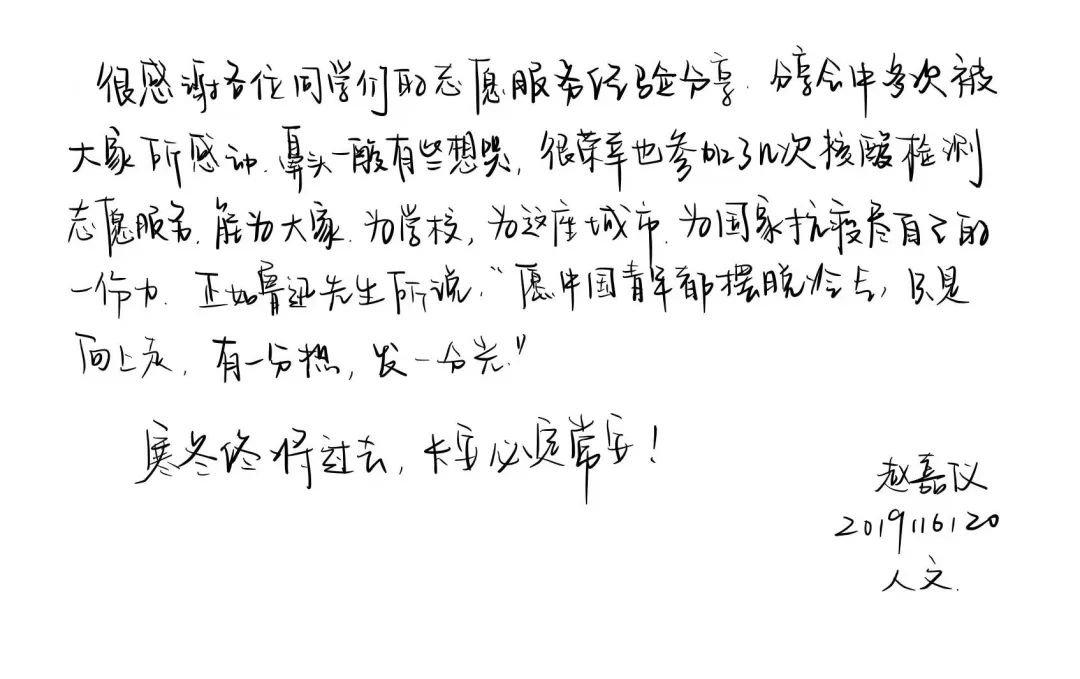 很感谢各位同学们的志愿服务经验分享.分享会中多次被
大家所感动.鼻头一酸有些想哭,很荣幸也参加了几次核酸检测
志愿服务.能为大家.为学校,为这座城市.为国家抗疫尽自己的
一份力.正如鲁迅先生所说,“愿中国青年都摆脱冷气,只是
向上走,有一分热,发一分光.”
寒冬终将过去,长安必定常安!
赵嘉仪
2019116120
人文.